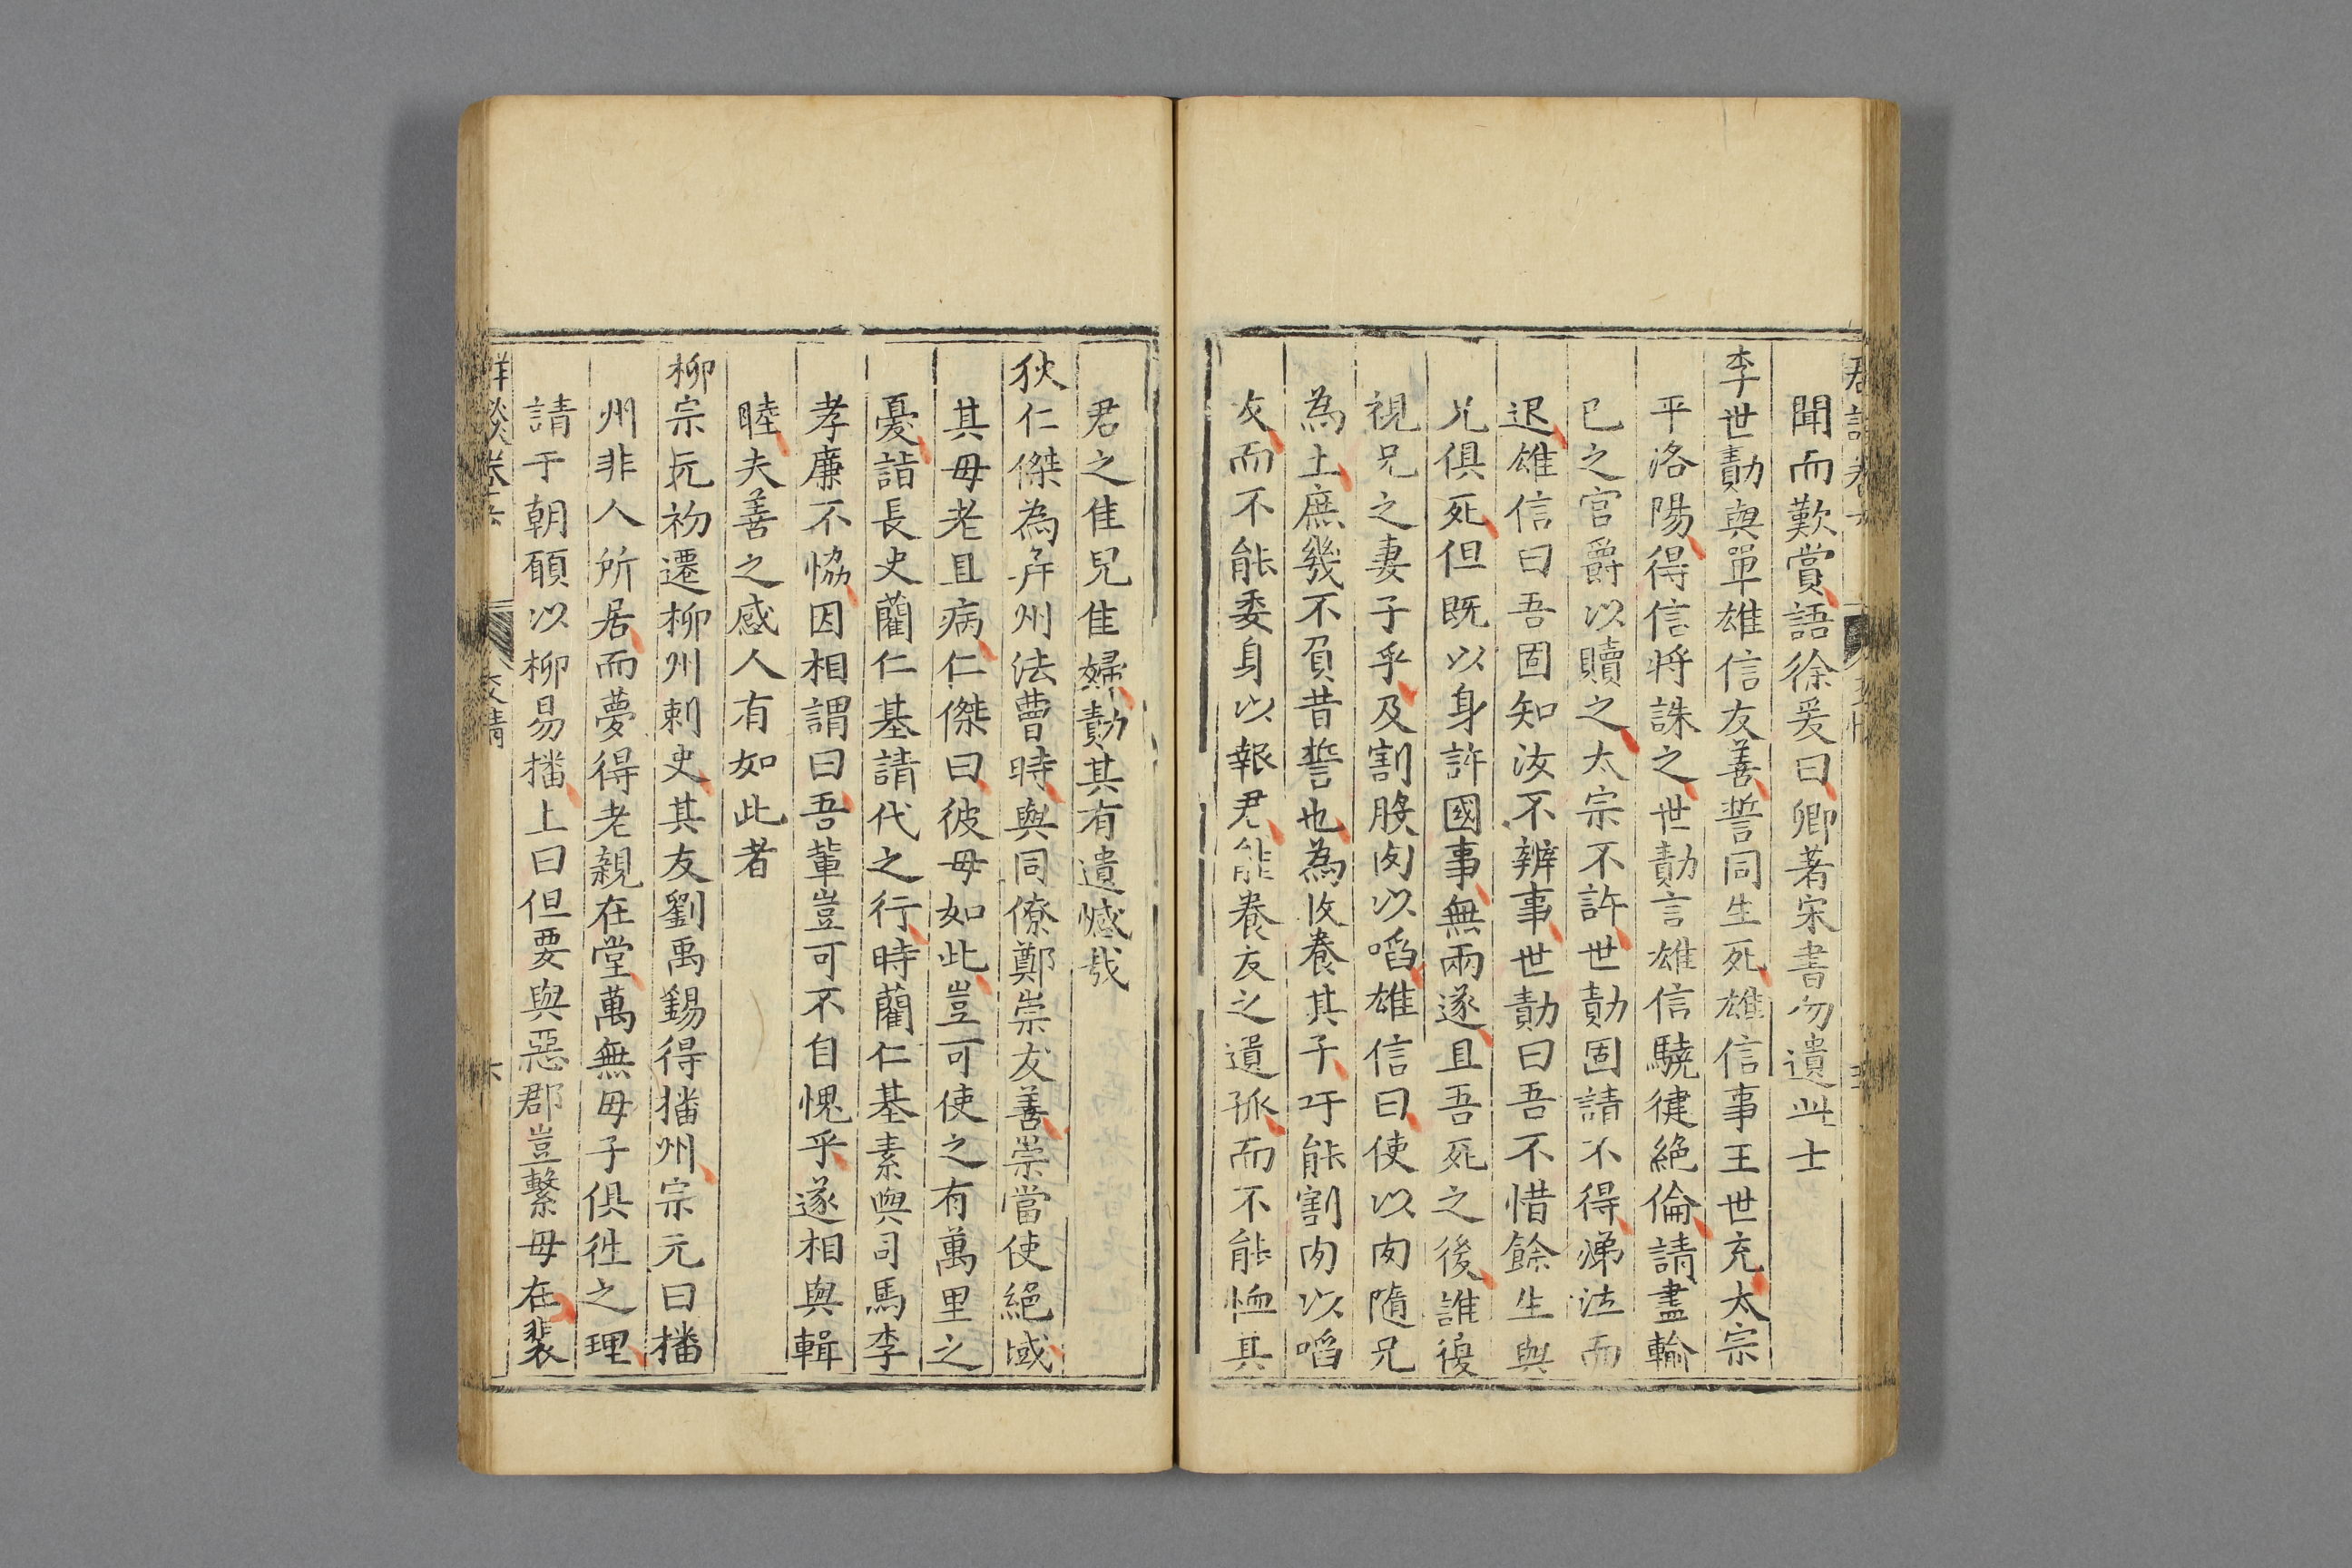 聞而歎賞語徐爰曰卿著宋書勿遺此士
李世勣與單雄信友善誓同生死雄信事王世充太宗
平洛陽得信將誅之世勣言雄信驍徤絶倫請盡輸
已之官爵以贖之太宗不許世勣固請不得涕泣而
退雄信曰吾固知汝不辨事世勣曰吾不惜餘生與
兄俱死但既以身許國事無兩遂且吾死之後誰復
視兄之妻子乎及割股肉以啗雄信曰使以肉隨兄
為土庶幾不負昔誓也為收養其子吁能割肉以啗
友而不能委身以報君能養友之遺孤而不能恤其
君之隹兒隹婦勣其有遺憾哉
狄仁傑為并州法曹時與同僚鄭崇友善崇當使絕域
其母老且病仁傑曰彼母如此豈可使之有萬里之
憂詣長史藺仁基請代之行時藺仁基素與司馬李
孝廉不恊因相謂曰吾輩豈可不自愧乎遂相與輯
睦夫善之感人有如此者
柳宗元初遷柳州刺史其友劉禹錫得播州宗元曰播
州非人所居而夢得老親在堂萬無母子俱徃之理
請于朝願以柳易播上曰但要與惡郡豈繫母在裴
交情
六